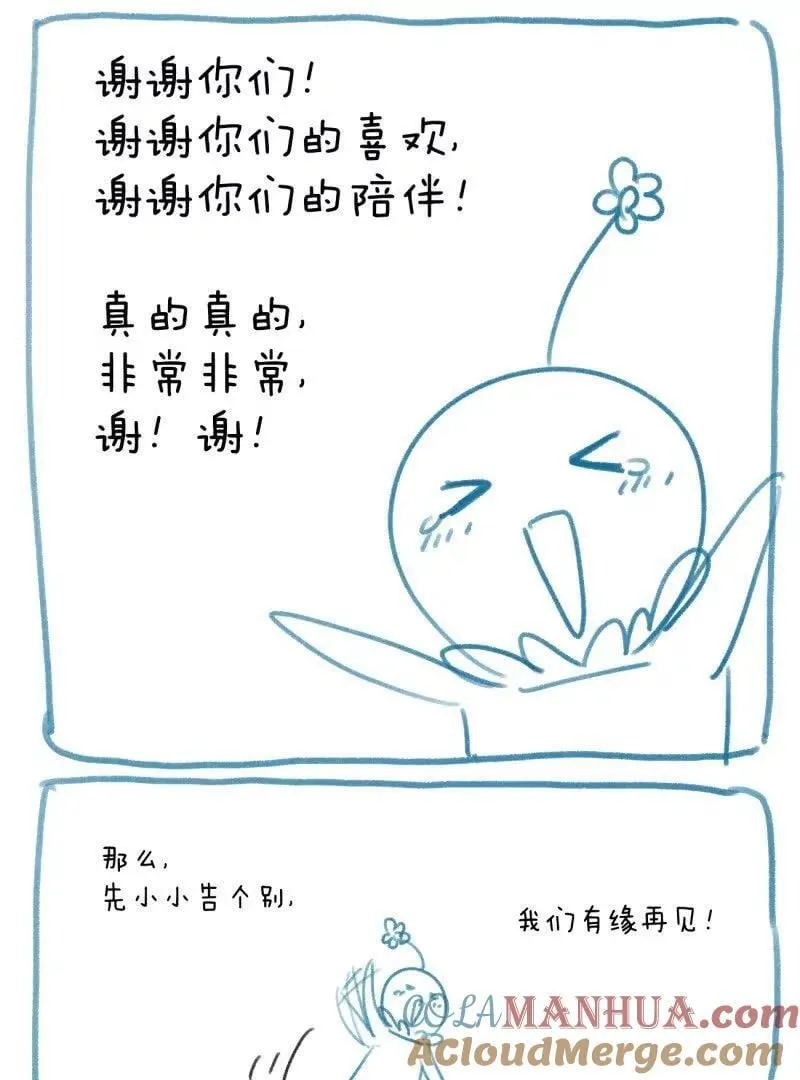 谢谢你们！
谢谢你们的喜欢，
谢谢你们的陪伴！
真的真的，
非常非常，
谢！谢！
那么，
先小小告个别，
我们有缘再见！
COLAMANHUA.com
AcloudMerge.com